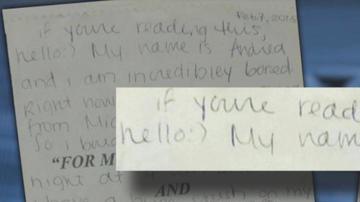 Feb 7, 2015
if youre reading this,
hello:) My name is Andrea
and i am incredibley bored
right now
from Mic
So i
"FOR M
night at
AND
if youre read
hello:) My nam